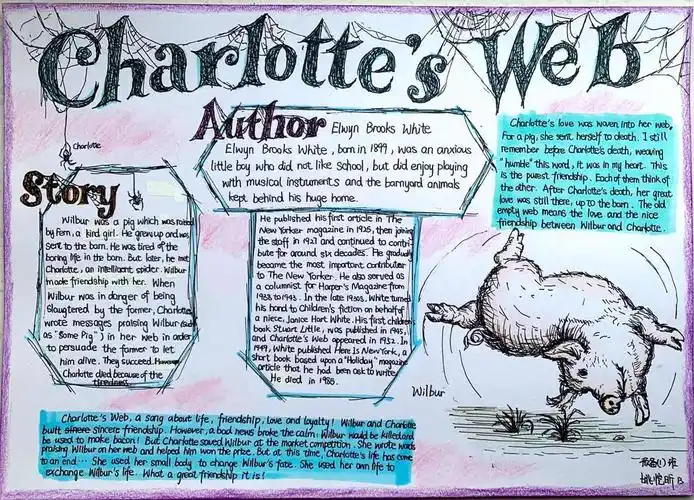 Charlotte's Web
Charlotte
Author
Elwyn Brooks White
Elwyn Brooks White, born in 1899, was an anxious
little boy who did not like school, but did enjoy playing
with musical instruments and the barnyard animals
kept behind his huge home.
He published his first article in The
New Yorker magazine in 1925, then joined
the staff in 1927 and continued to contri-
bute for around six decades. He gradually
became the most important contributor
to The New Yorker. He also served as
a columnist for Harper's Magazine from
1938 to 1943. In the late 1930s, White turned
his hand to children's fiction on behalf of
a niece, Janice Hart White. His first children's
book Stuart Little, was published in 1945,
and Charlotte's Web appeared in 1952. In
1949, White published Here Is New York, a
short book based upon a "Holiday" magazine
article that he had been ask to write.
He died in 1985.
Story
Wilbur was a pig which was raised
by Fern, a kind girl. He grew up and was
sent to the barn. He was tired of the
boring life in the barn. But later, he met
Charlotte, an intelligent spider. Wilbur
made friendship with her. When
Wilbur was in danger of being
slaugtered by the former, Charlotte
wrote messages praising Wilbur (such
as "Some Pig") in her web in order
to persuade the farmer to let
him alive. They succeed. However
Charlotte died because of the
tiredness.
Charlotte's love was woven into her web.
For a pig, she sent herself to death. I still
remember before Charlotte's death, weaving
"humble" this word, it was in my heart. This
is the purest friendship. Each of them think of
the other. After Charlotte's death, her great
love was still there, up to the barn. The old
empty web means the love and the nice
friendship between Wilbur and Charlotte.
Wilbur
Charlotte's Web, a song about life, friendship, love and loyalty! Wilbur and Charlotte
built sincere friendship. However, a bad news broke the calm: Wilbur would be killed and
be used to make bacon! But Charlotte saved Wilbur at the market competition. She wrote words
praising Wilbur on her web and helped him won the prize. But at this time, Charlotte's life has come
to an end... She used her small body to change Wilbur's fate. She used her own life to
exchange Wilbur's life. What a great friendship it is!